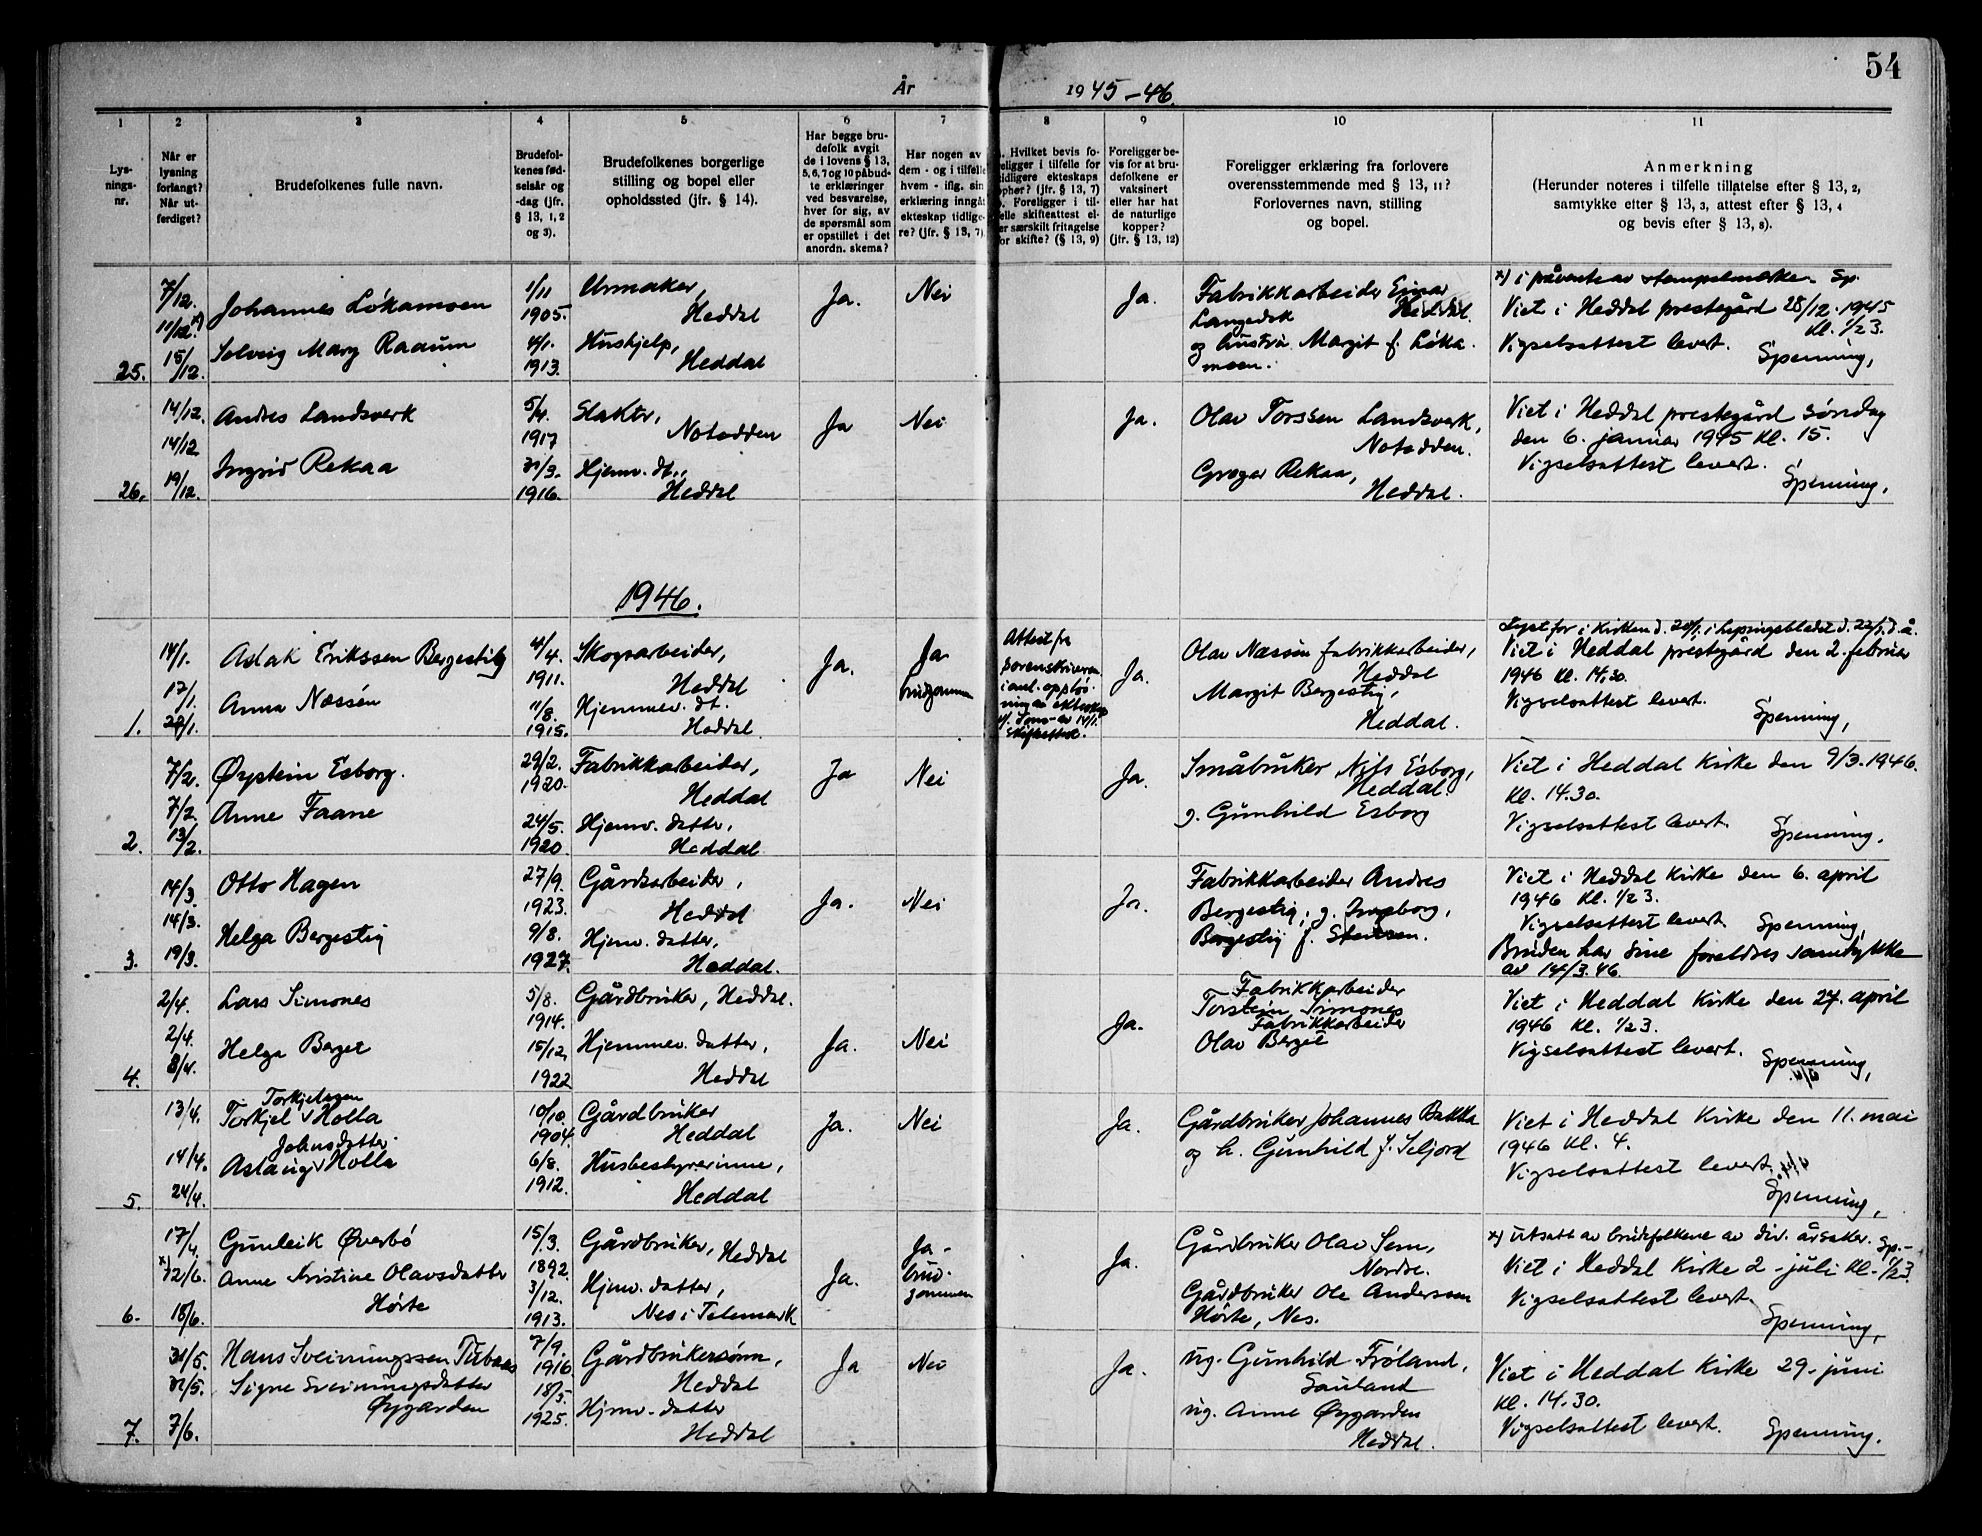 54
År 1945-46.
1
2
3
4
5
6
7
8
9
10
11
Lys-
nings-
nr.
Når er
lysning
forlangt?
Når ut-
ferdiget?
Brudefolkenes fulle navn.
Brudefol-
kenes fød-
selsår og
-dag (jfr.
§ 13, 1, 2
og 3).
Brudefolkenes borgerlige
stilling og bopel eller
opholdssted (jfr. § 14).
Har begge bru-
defolk avgit
de i lovens § 13,
5, 6, 7 og 10 påbud-
te erklæringer
ved besvarelse,
hver for sig, av
de spørsmål som
er opstillet i det
anordn. skema?
Har nogen av
dem - og i tilfelle
hvem - iflg. sin
erklæring inngåt
ekteskap tidlige-
re? (jfr. § 13, 7)
Hvilket bevis fo-
religger i tilfelle for
tidligere ekteskaps
ophør? (jfr. § 13, 7)
Foreligger i til-
felle skifteattest el-
ler særskilt fritagelse
for skifte? (§ 13, 9)
Foreligger be-
vis for at bru-
defolkene er
vaksinert
eller har hat
de naturlige
kopper?
(jfr. § 13, 12)
Foreligger erklæring fra forlovere
overensstemmende med § 13, 11?
Forlovernes navn, stilling
og bopel.
Anmerkning
(Herunder noteres i tilfelle tillatelse efter § 13, 2,
samtykke efter § 13, 3, attest efter § 13, 4
og bevis efter § 13, 8).
25.
7/12.
11/12 x)
15/12.
Johannes Lókamoen
Solveig Mary Raaum
1/11
1905.
4/1.
1913.
Urmaker,
Heddal
Hushjelp,
Heddal
Ja.
Nei
Ja.
Fabrikkarbeider Einar
Langedok Heddal.
og hustru Margit f. Lóka-
moen.
x) i påvente av stempelmerker. Sp.
Viet i Heddal prestegård 28/12. 1945
Kl. 1/2 3.
Vigselsattest levert.
Spenning,
26.
14/12.
14/12
19/12.
Andres Landsverk
Ingrid Rekaa
5/4.
1917
31/3.
1916.
Slaktr,
Notodden
Hjemv. dt.,
Heddal
Ja
Nei
Ja.
Olav Torssen Landsverk,
Notodden.
Greger Rekaa,
Heddal.
Viet i Heddal prestegård søndag
den 6. januar 1945 kl. 15.
Vigselsattest levert.
Spenning,
1946.
1.
14/1.
17/1.
29/1.
Aslak Erikssen Bergestig
Anna Næssén
4/4.
1911.
11/8.
1915.
Skogsarbeider,
Heddal
Hjemmev. dt.
Heddal.
Ja.
Ja
brudgommen
Attest fra
sorenskriveren
i anl. oppløs-
ning av ekteskap
av 14/1.
Skifteattest.
Ja.
Olav Næssén fabrikkarbeider,
Heddal
Margit Bergestig,
Heddal.
Lyst for i Kirken d. 20/1. i lysningsbladet d. 22/1. d. å.
Viet i Heddal prestegård den 2. februar
1946 kl. 14.30.
Vigselsattest levert.
Spenning,
2.
7/2.
7/2.
13/2.
Øystein Esborg.
Anne Faane
29/2.
1920.
24/5.
1920.
Fabrikkarbeider,
Heddal
Hjemv. datter,
Heddal.
Ja
Nei
Ja.
Småbruker Nils Esborg,
Heddal.
g. Gunhild Esborg
Viet i Heddal Kirke den 9/3. 1946.
kl. 14.30.
Vigselsattest levert.
Spenning,
3.
14/3.
14/3.
19/3.
Otto Hagen
Helga Bergestig
27/9.
1923.
9/8.
1927.
Gårdsarbeider,
Heddal
Hjemv. datter,
Heddal.
Ja.
Nei
Ja.
Fabrikkarbeider Andres
Bergestig; g. Ingeborg,
Bergestig f. Stensen.
Viet i Heddal Kirke den 6. april
1946 Kl. 1/2 3.
Vigselsattest levert.
Spenning,
Bruden har sine foreldres samtykke
av 14/3. 46.
4.
2/4.
2/4.
8/4.
Lars Simones
Helga Berget
5/8.
1914.
15/12.
1922
Gårdbruker, Heddal.
Hjemmev. datter,
Heddal
Ja.
Nei
Ja.
Fabrikkarbeider
Torstein Simones
Fabrikkarbeider
Olav Berget
Viet i Heddal Kirke den 27. april
1946 kl. 1/2 3.
Vigselsattest levert.
Spenning,
5.
13/4.
14/4.
24/4.
Torkjelsen
Torkjel v Holla
Johnsdatter
Aslaug v Holla
10/10.
1904.
6/8.
1912.
Gårdbruker
Heddal
Husbestyrerinne,
Heddal
Ja.
Nei
Ja.
Gårdbruker Johannes Bakka
og h. Gunhild f. Seljord
Viet i Heddal Kirke den 11. mai
1946 kl. 4.
Vigselsattest levert.
Spenning,
6.
17/4.
x) 12/6.
18/6.
Gunleik Øverbó
Anne Kristine Olavsdatter
Hórte
15/3.
1892.
3/12.
1913.
Gårdbruker, Heddal
Hjmv. datter,
Nes i Telemark
Ja.
Ja-
brud-
gommen
Ja.
Gårdbruker Olav Sem,
Nordre.
Gårdbruker Ole Anderssen
Hórte, Nes.
x) Utsatt av brudefolkene av div. årsaker. Sp.-
Viet i Heddal Kirke 2-juli kl. 1/2 3.
Vigselsattest levert.
Spenning,
7.
31/5.
31/5.
7/6.
Hans Sveinungssen
Signe Sveinungsdatter
Øygarden
7/9.
1916
18/5.
1925.
Gårdbrukersønn,
Heddal
Hjmv. datter
Heddal
Ja
Nei
Ja.
ug. Gunhild Frøland,
Sauland
ug. Anne Øygarden
Heddal.
Viet i Heddal Kirke 29-juni
kl. 14.30.
Vigselsattest levert.
Spenning,